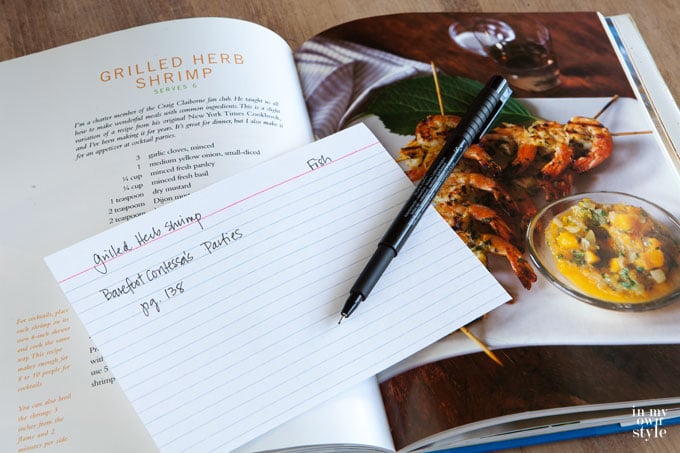 GRILLED HERB
SHRIMP
SERVES 6
I'm a charter member of the Craig Claiborne fan club. He taught us all
how to make wonderful meals with common ingredients. This is a slight
variation of a recipe from his original New York Times Cookbook,
and I've been making it for years. It's great for dinner, but I also make it
for an appetizer at cocktail parties.
3 garlic cloves, minced
1 medium yellow onion, small-diced
¼ cup minced fresh parsley
¼ cup minced fresh basil
1 teaspoon dry mustard
2 teaspoons Dijon
2 teaspoons
For cocktails, place
each shrimp on its
own 6-inch skewer
and cook the same
way. This recipe
makes enough for
8 to 10 people for
cocktails.
You can also broil
the shrimp: 3
inches from the
flame and 2
minutes per side.
with
use 5
shrimp
Fish
Grilled Herb Shrimp
Barefoot Contessa's Parties
pg. 138
in my
own
style